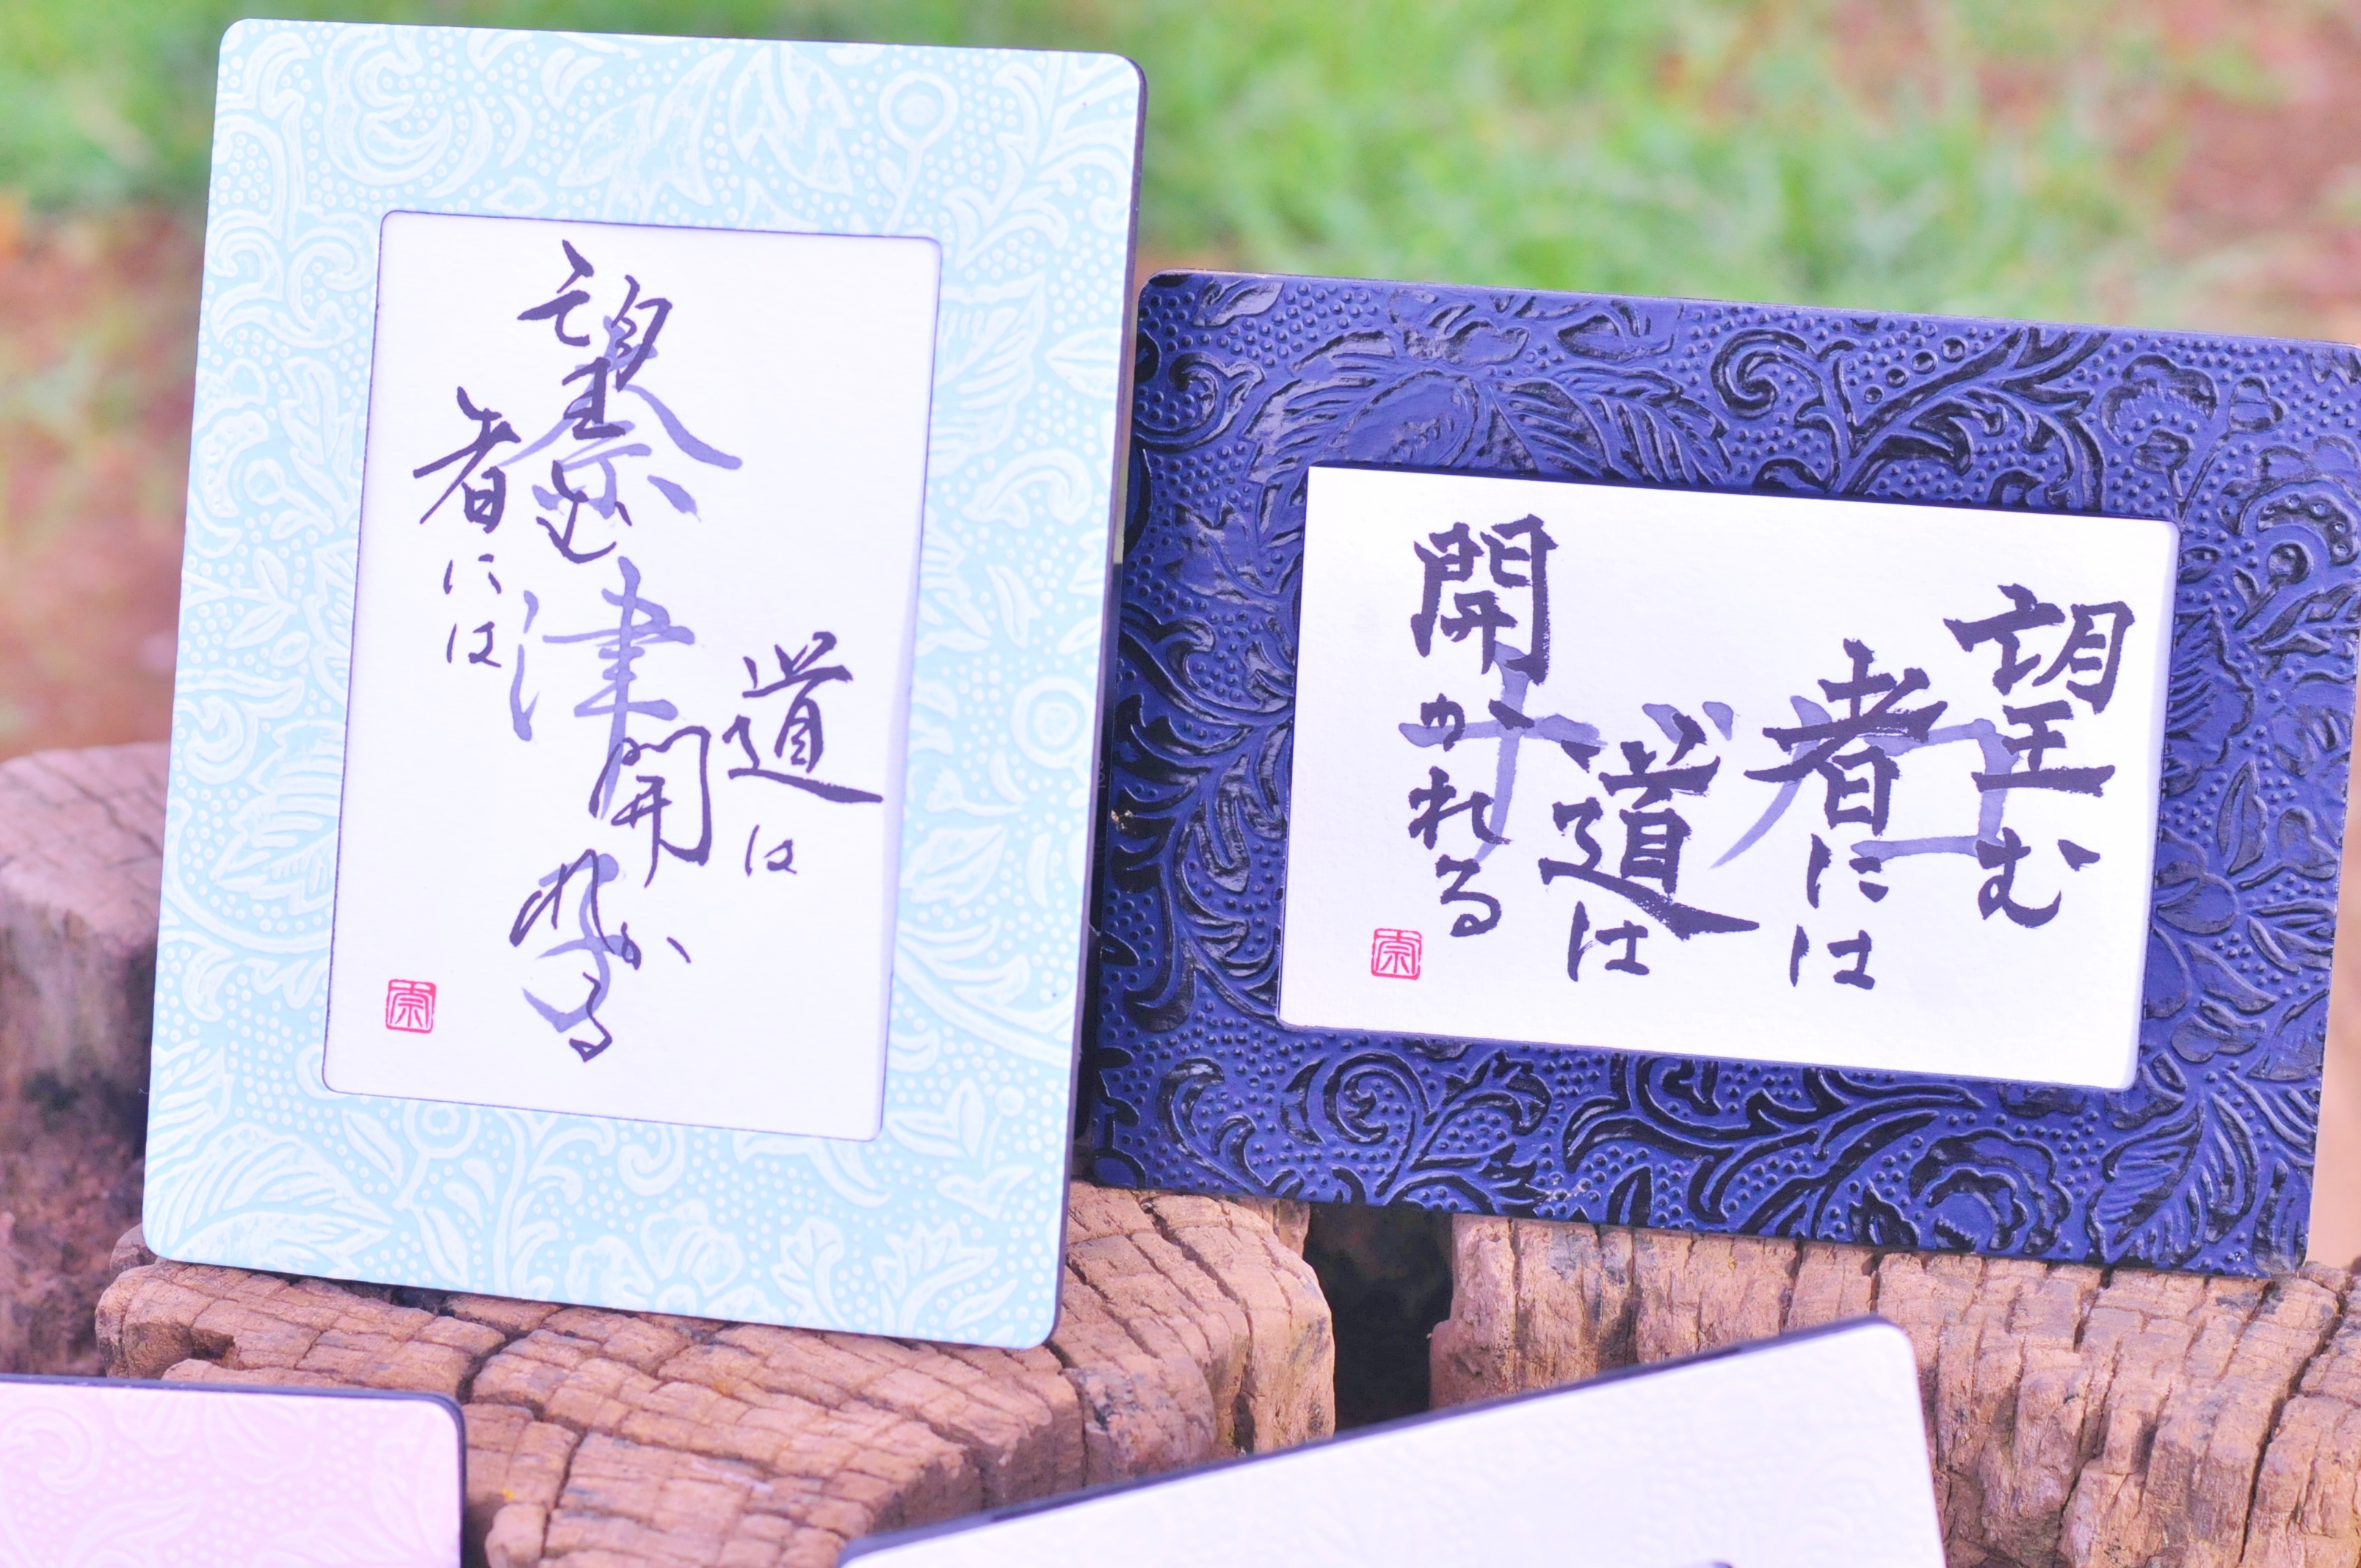 望む
者には
道は
開かれる
奈津子
望む
者には
道は
開かれる